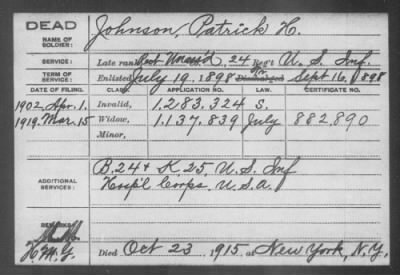 DEAD
Johnson, Patrick H.
NAME OF SOLDIER:
SERVICE:
Late rank, 24 Reg't U. S. Inf.
TERM OF SERVICE:
Enlisted July 19, 1898 Discharged Sept 16, 1898
DATE OF FILING. CLASS. APPLICATION NO. LAW. CERTIFICATE NO.
1902, Apr. 1. Invalid, 1.283.324 S.
1919, Mar. 15 Widow, 1.137.839 July 882.890
Minor,
ADDITIONAL SERVICES:
B. 24 + K. 25, U. S. Inf
Hosp'l Corps, U.S.A.
REMARKS:
Died Oct 23, 1915, at New York, N.Y.